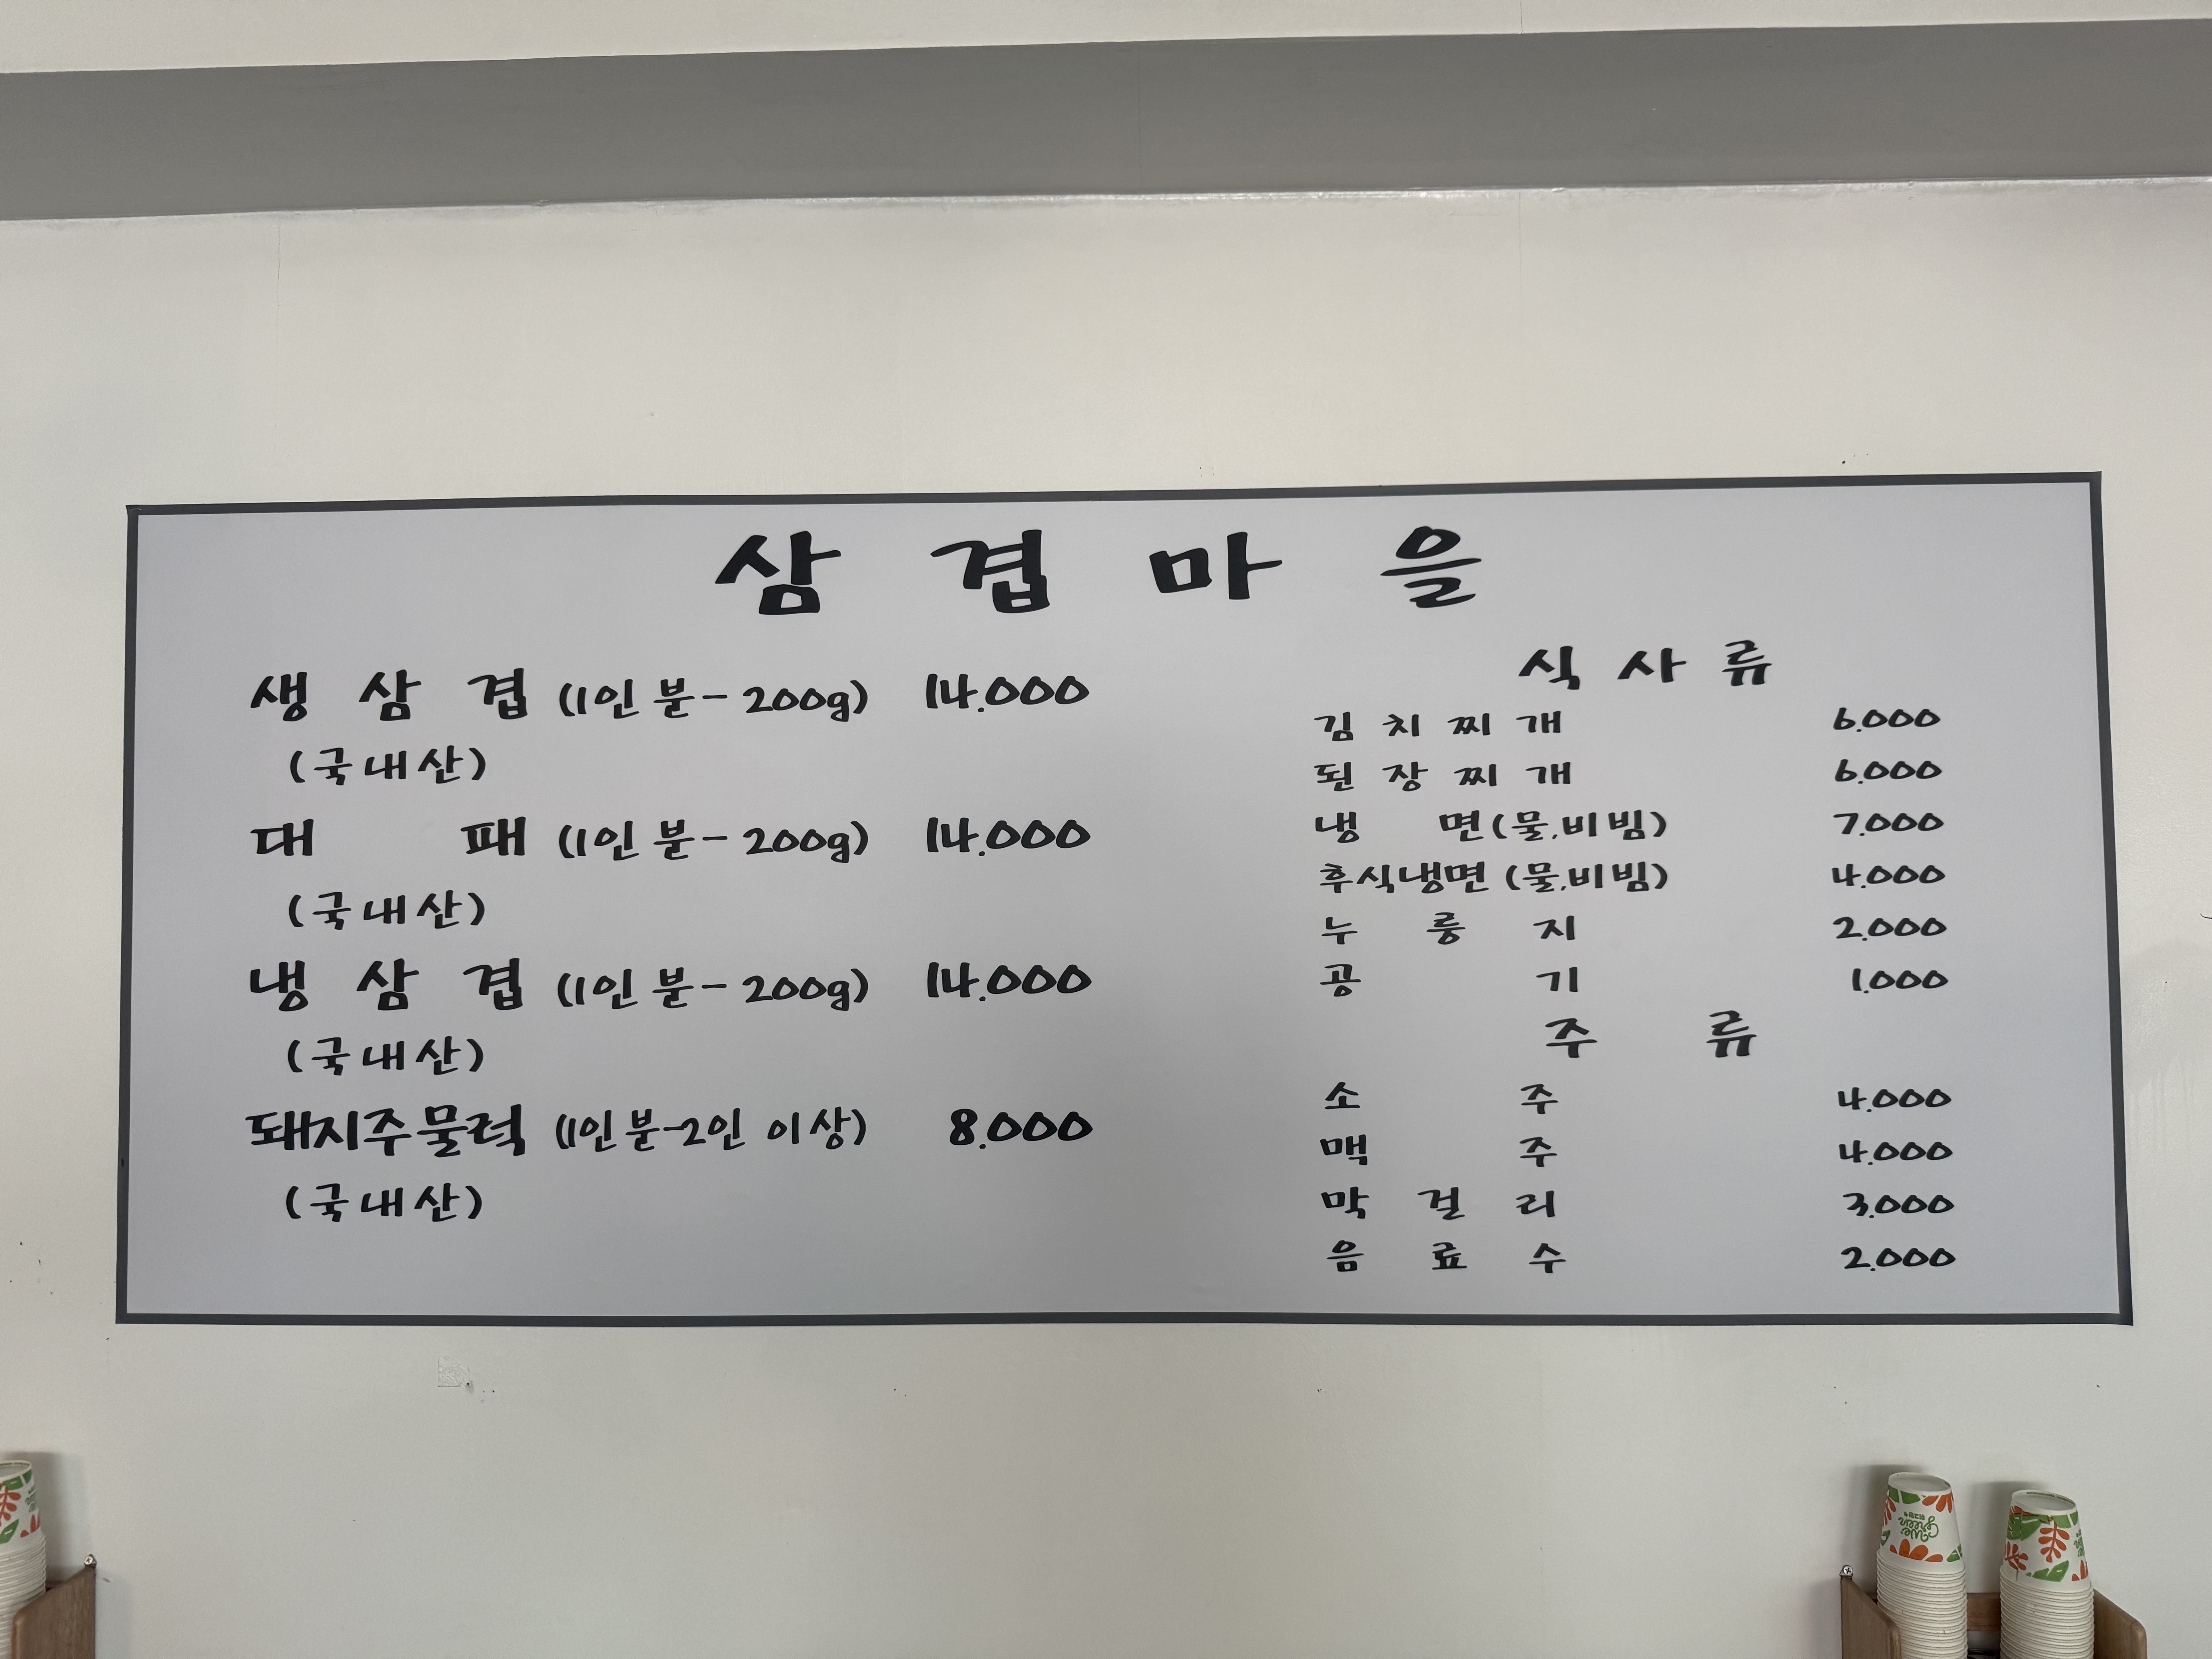 삼겹마을
생삼겹 (1인분-200g) 14.000
(국내산)
대패 (1인분-200g) 14.000
(국내산)
냉삼겹 (1인분-200g) 14.000
(국내산)
돼지주물럭 (1인분-2인 이상) 8.000
(국내산)
식사류
김치찌개 6.000
된장찌개 6.000
냉면(물,비빔) 7.000
후식냉면 (물,비빔) 4.000
누룽지 2.000
공기 1.000
주류
소주 4.000
맥주 4.000
막걸리 3.000
음료수 2.000